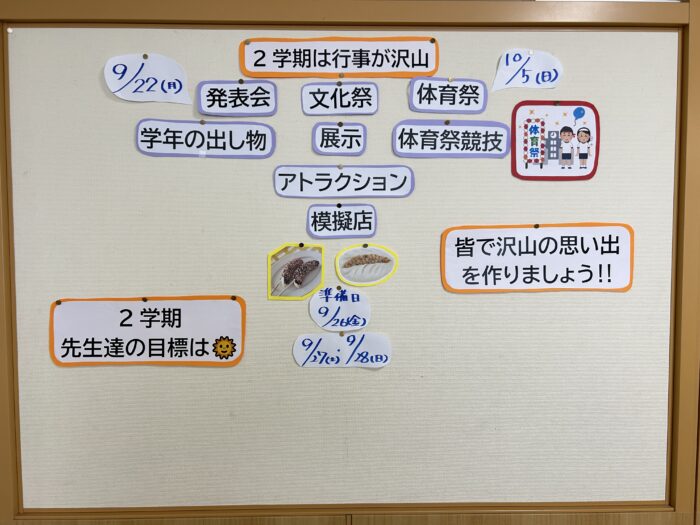 2学期は行事が沢山
9/22(月)
10/5(日)
発表会
文化祭
体育祭
学年の出し物
展示
体育祭競技
体育祭
アトラクション
模擬店
皆で沢山の思い出
を作りましょう!!
準備日
9/26(金)
9/27(土)・9/28(日)
2学期
先生達の目標は